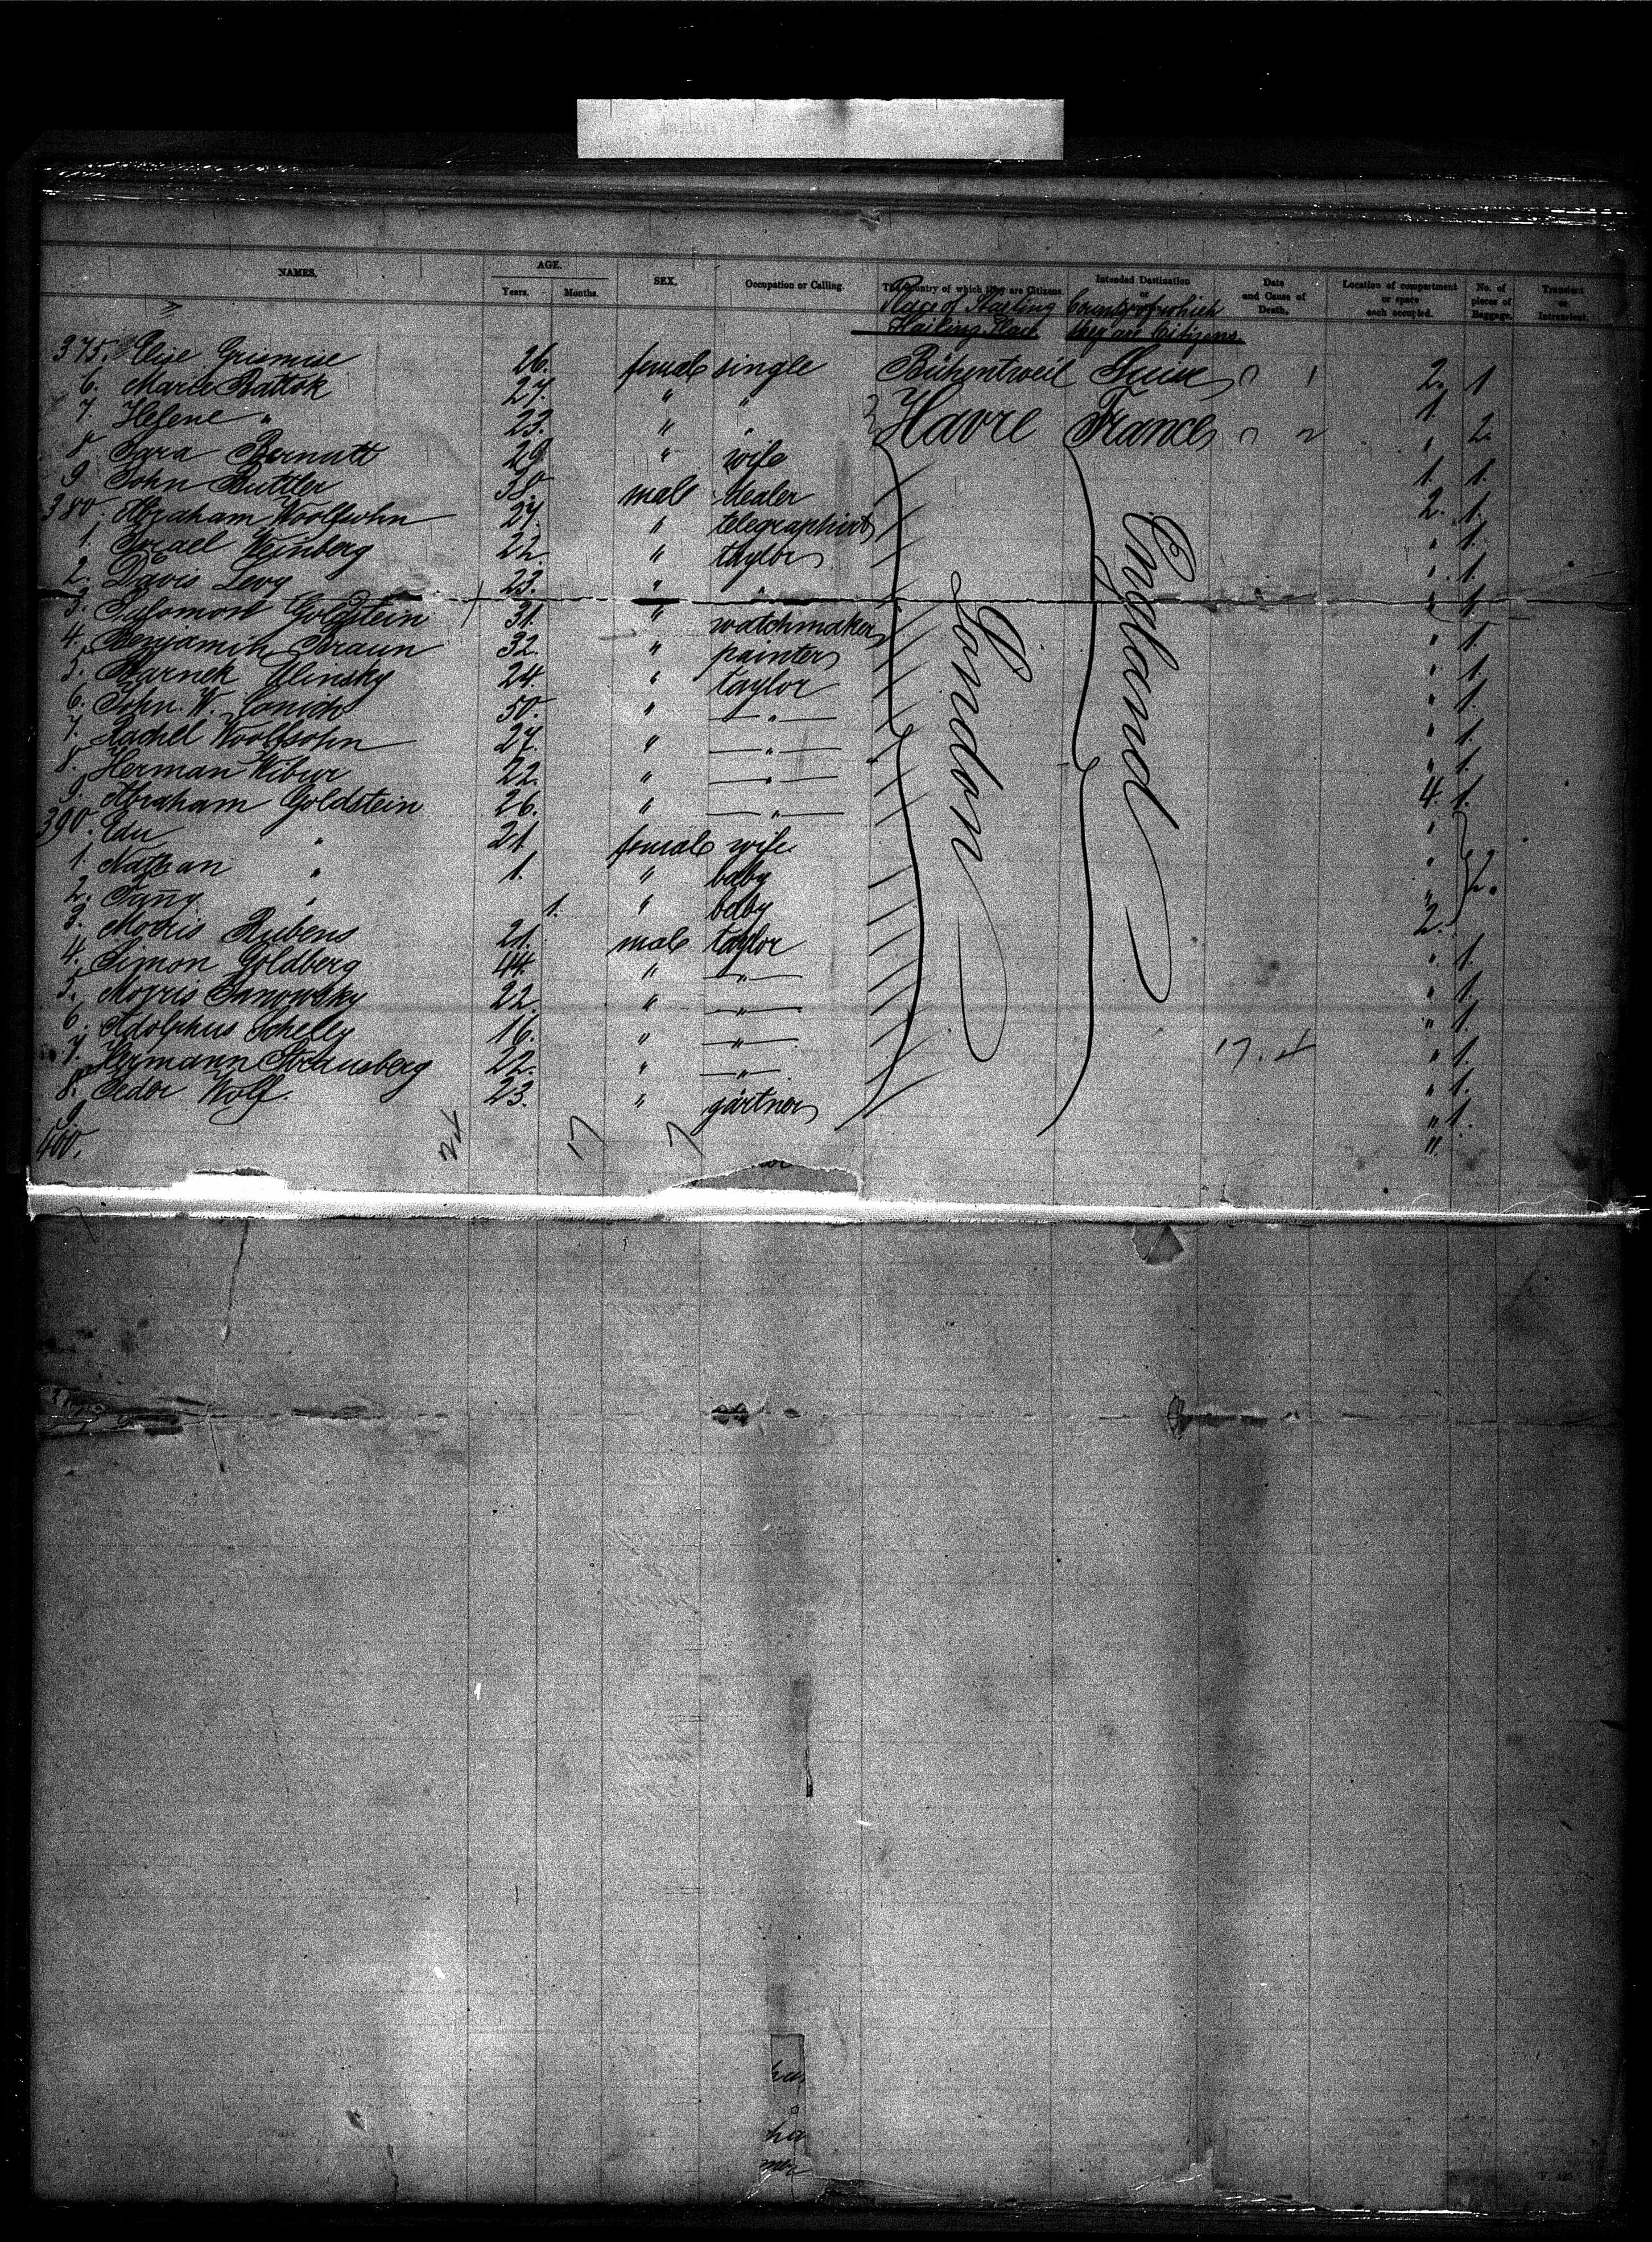 NAMES. AGE. Years. Months. SEX. Occupation or Calling. The Country of which they are Citizens. Intended Destination or Date and Cause of Death. Location of compartment or space each occupied. No. of pieces of Baggage. Transient or Intransient.
Place of Starting Country of which
Hailing Place they are Citizens.
375. Elise Grismise 26. female single Bühentweil 2. 1
6. Marie Battok 27. " " 1.
7. Helene " 23. " " Havre France " 2.
8. Sara Bernatt 29. " wife 1. 1.
9. John Buttler 38. male dealer 2. 1.
380. Abraham Woolfsohn 27. " telegraphist " 1.
1. Israel Weinberg 22. " taylor " 1.
2. Davis Levy 23. " " " 1.
3. Salomon Goldstein 31. " watchmaker " 1.
4. Benjamin Braun 32. " painter " 1.
5. Barnek Ulinsky 24. " taylor " 1.
6. John. W. 50. " — " — " 1.
7. Rachel Woolfsohn 27. " — " — " 1.
8. Herman Wibur 22. " — " — 4. 1.
9. Abraham Goldstein 26. " — " — "
390. Edu " 21. female wife "
1. Nathan " 1. " baby " 2.
2. Fany " 1. " baby 2.
3. Morris Rubens 21. male taylor " 1.
4. Simon Goldberg 44. " — " — " 1.
5. Morris Janowsky 22. " — " — " 1.
6. Adolphus Schelly 16. " — " — " 1.
7. Hermann Strausberg 22. " — " — " 1.
8. Isedor Wolf. 23. " gärtner " 1.
9.
400. "
London
England
24 17 7
17.